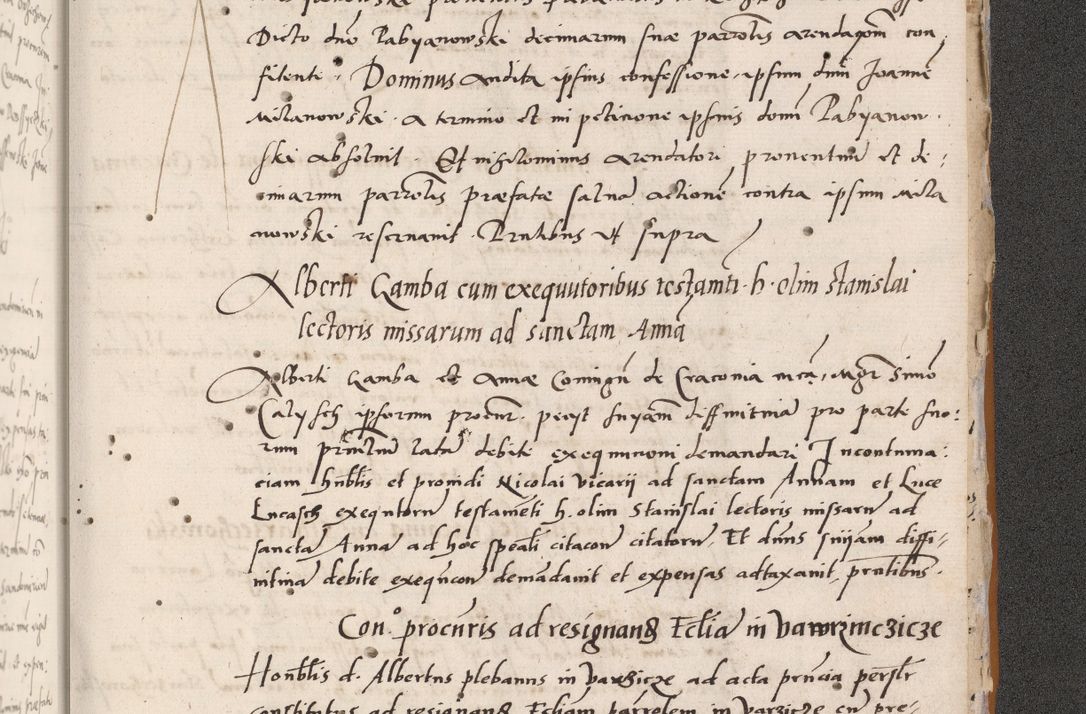 Dicto dno Pabyanowski decimarum suæ parrolis arendagom con,
fitenti. Dominus audita ipsius confessione, ipsum dnm Joanne
Milanowski. A termino et in petitione ipsius domi Pabyanow.
ski absoluit. Et nihilominus arendatori prouentuu et de:
cimarum parrolis præfatæ salua actione contra ipsum Mila
nowski reseruauit. Pntibus vt supra
Alberti Gamba cum exequutoribus testamti. h. olim stanislai
lectoris missarum ad sanctam Anna
Alberti Gamba et Annæ Comingn de Cracouia mca, Mgr Simo
Calysch ipsorum procur. pecyt snyam diffinitiua pro parte suo:
rum principaliu lata debite exequutioni demandari In contuma:
ciam hnblis et prouidi Nicolai vicarii ad sanctam Annam et Luce
Lucasch exequtoru testameti h. olim Stanislai lectoris missaru ad
sancta Anna ad hoc speali citacon citatoru. Et dnus sniiam diffi-
nitiua debite exequcon demandauit et expensas adtaxauit, pntibus.
Con. procuris ad resignand Eclia in Vawrzinczicze
Honblis d. Albertus plebanus in Varzicze ad acta pncia persolr
constitutus ad resignand Ecliam parrolem in varzicze cu pre-